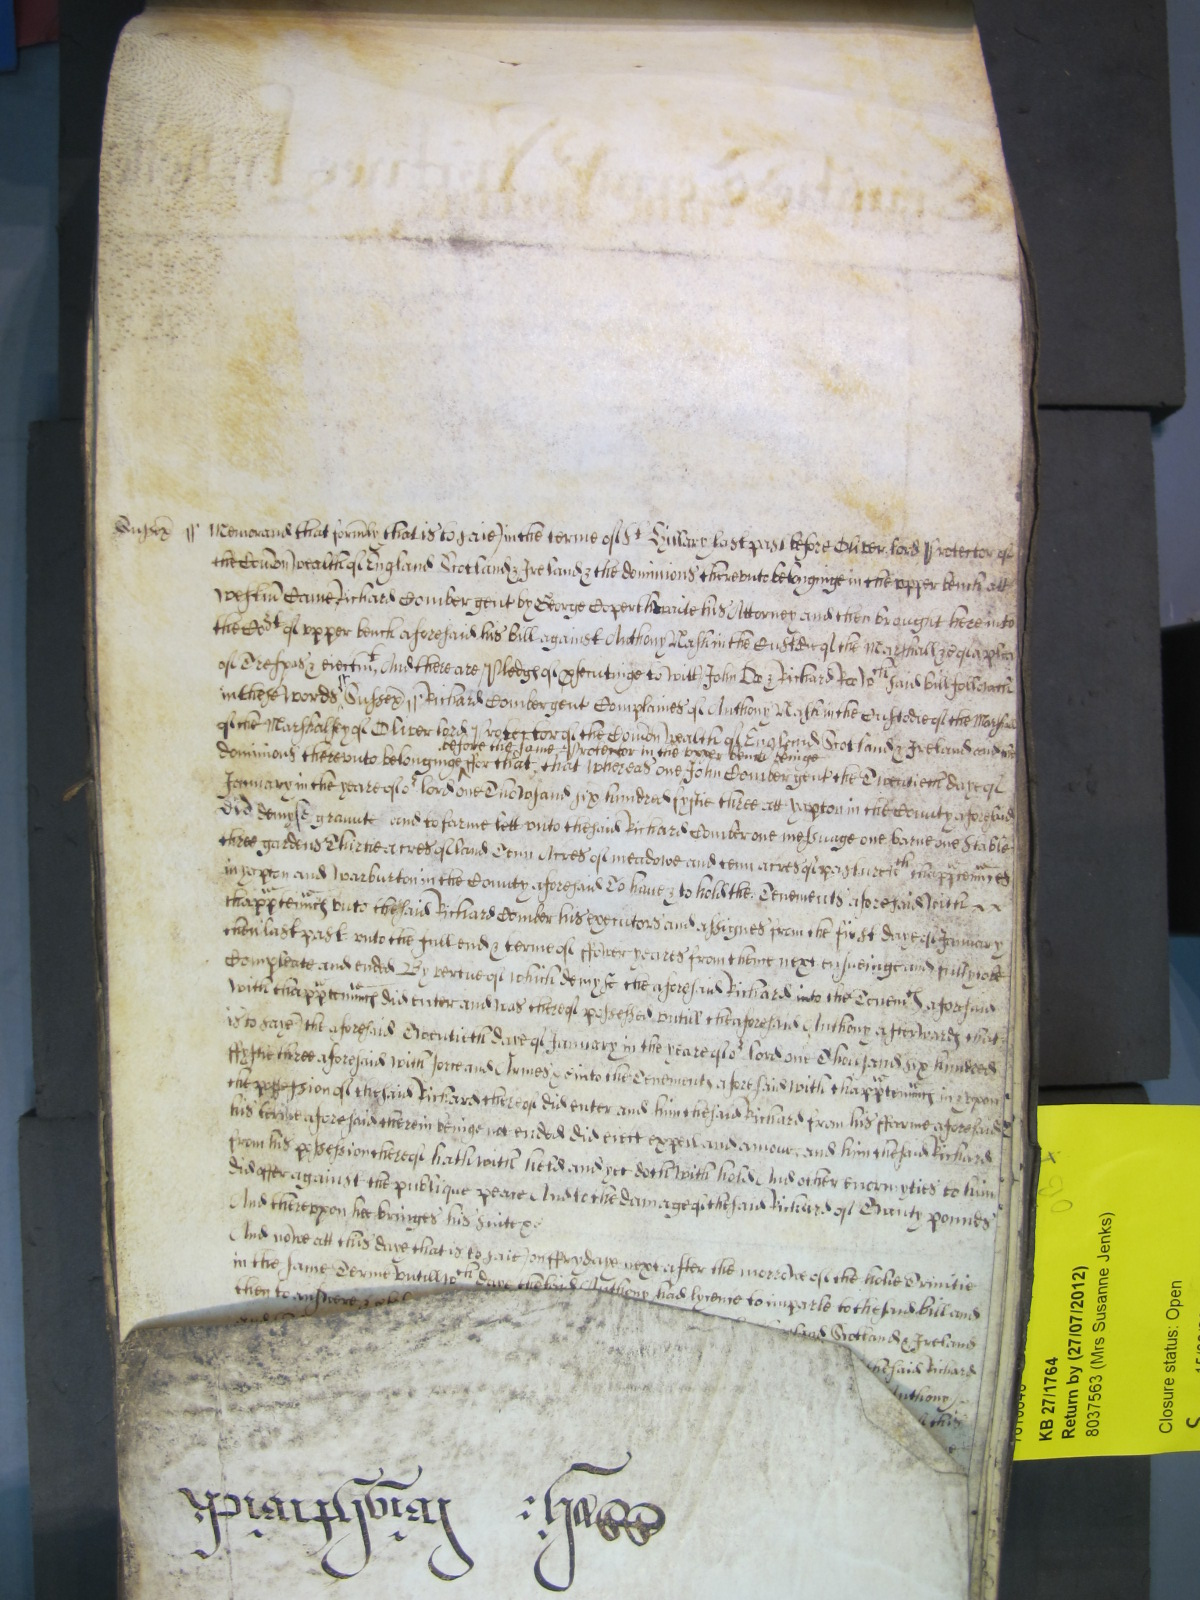 Sussex ss Memorand that formly that is to saie in the terme of St Hillary last past before Oliver lord Protector of
the Comon wealth of England Scotland & Ireland & the dominions thereunto belonginge in the upper bench att
Westm Came Richard Comber gent by George Copperthwaite his Attorney and then brought here into
the Cort of upper bench aforesaid his bill against Anthony Nash in the Custdie of the Marshall &c of a plea
of Trespas & eiectmt And there are Pledges of psecutinge to witt John Doe & Richard Roe wch said bill followeth
in these words ss Sussex ss Richard Comber gent Complaines of Anthony Nash in the Custodie of the Marshall
of the Marshalsey of Oliver lord Protector of the Comon wealth of England Scotland & Ireland and the
before the same Protector in the upper bench beinge
dominions thereunto belonginge for that, that whereas one John Comber gent the Twentieth daye of
January in the yeare of or lord one Thowsand six hundred fyftie three att Yapton in the County aforesaid
Did demyse graunte and to farme lett unto the said Richard Comber one messuage one barne one Stable
three gardens Thirtie acres of land Tenn Acres of meadowe and tenn acres of pasture wth thapptennces
in Yapton and Warburton in the County aforesaid To have & to hold the Tenements aforesaid with
thapptennces unto the said Richard Comber his executors and assignes from the first daye of January
then last past unto the full end & terme of ffower yeares from thence next ensueinge and fully to be
Compleate and ended By vertue of which demyse the aforesaid Richard into the Tenemts aforesaid
with thapptennces did enter and was thereof possessed untill the aforesaid Anthony afterwards that
is to saye the aforesaid Twentieth daye of January in the yeare of or lord one Thousand six hundred
ffyftie three aforesaid with force and Armes &c into the Tenements aforesaid with thapptennces in & upon
the possession of the said Richard thereof did enter and him the said Richard from his ffarme aforesaid
his terme aforesaid therein beinge not ended did eiect expell and amove, and him the said Richard
from his possession thereof hath with held and yet doth with hold And other enormyties to him
did offer against the publique peace And to the damage of the said Richard of Twenty pounds
And thereuppon hee bringes his suite &c
And nowe att this daye that is to saie on ffrydaye next after the morrowe of the holie Trinitie
in the same Terme untill wch daye the said Anthony had lycence to imparle to the said bill and
then to answere
Scotland & Ireland
the said Richard
Anthony
this
Wightwick
KB 27/1764
Return by (27/07/2012)
8037563 (Mrs Susanne Jenks)
Closure status: Open